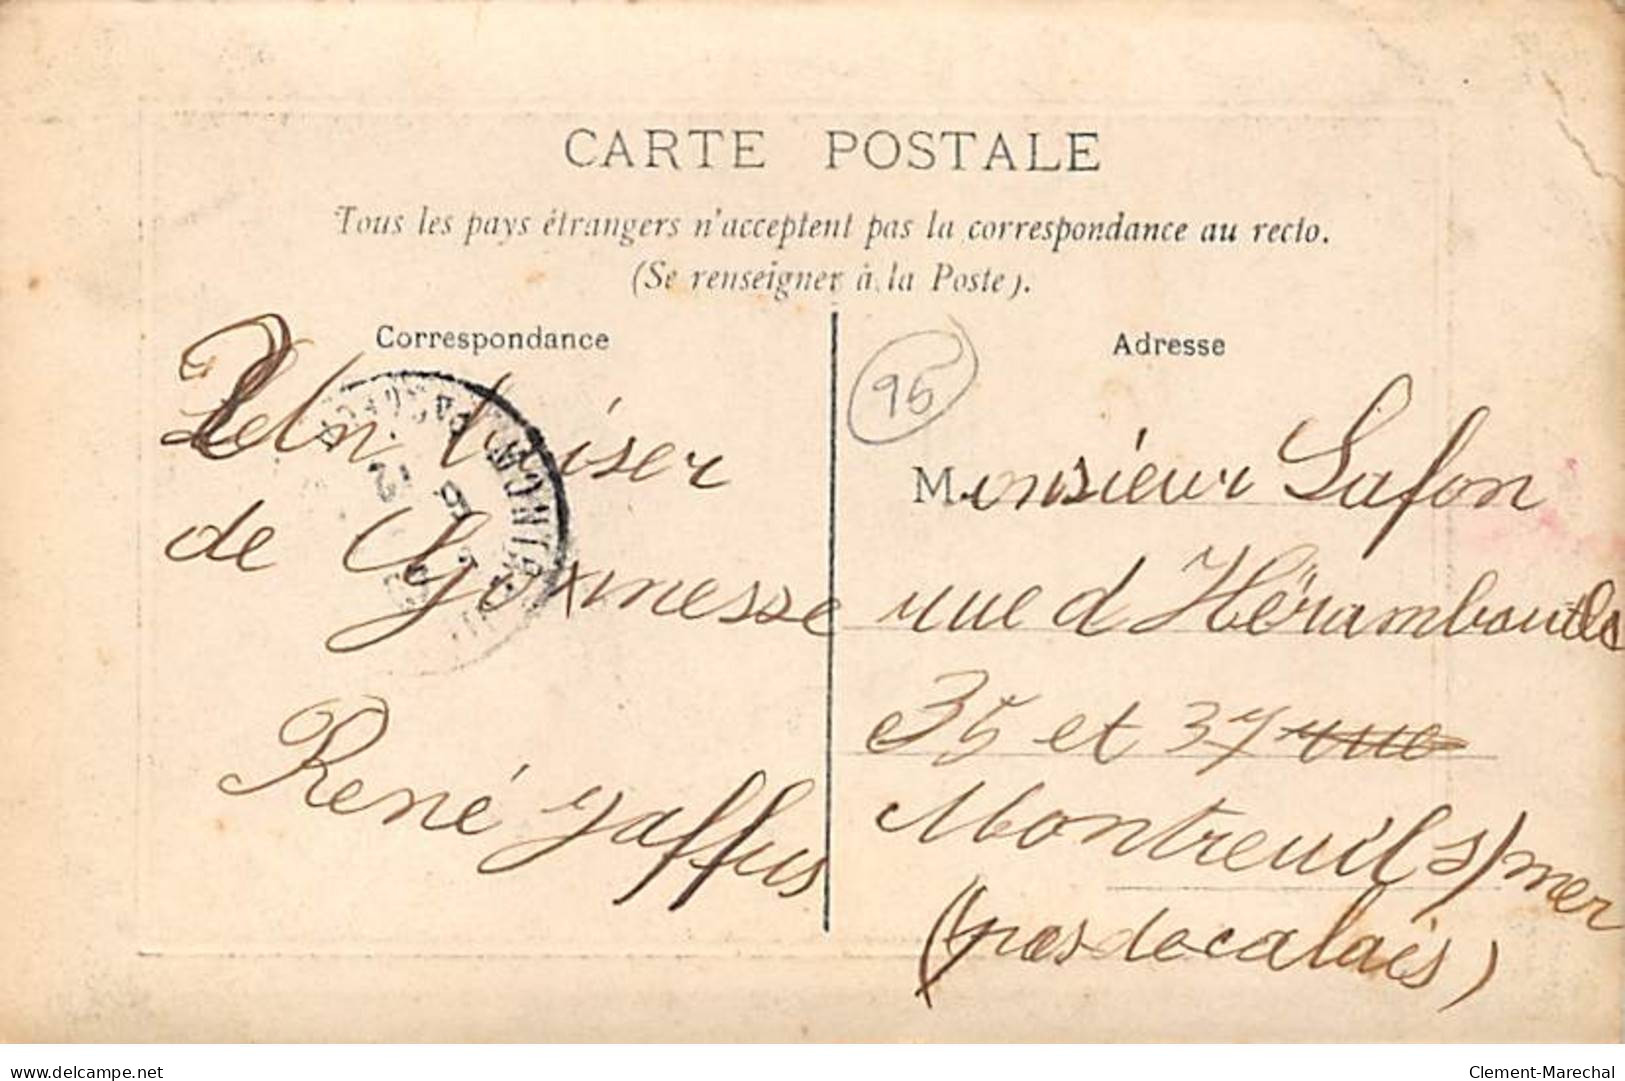 CARTE POSTALE
Tous les pays étrangers n'acceptent pas la correspondance au recto.
(Se renseigner à la Poste).
Correspondance
Un baiser
de
René Jaffus
Adresse
95
Monsieur Lafon
rue d Hérambault
35 et 37 rue
Montreuil s/mer
(pas de calais)
delcampe.net
Clement-Marechal